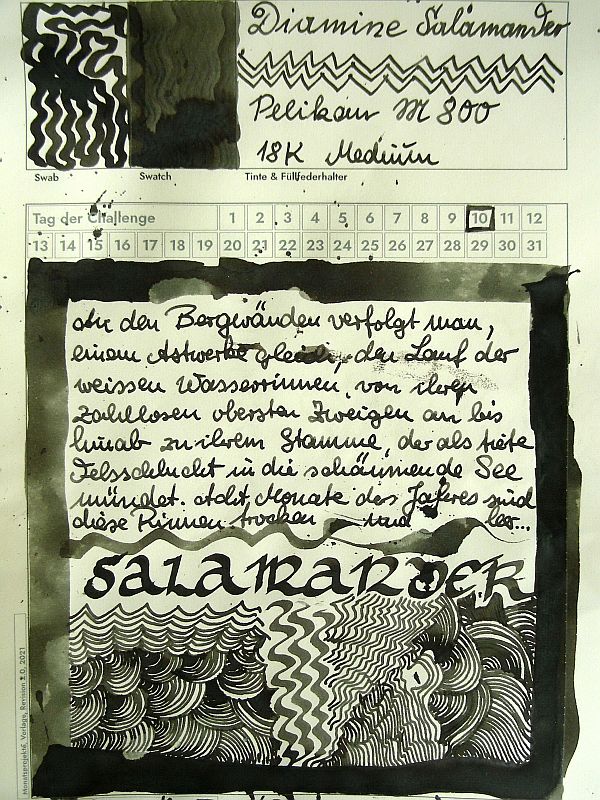 Diamine Salamander
Pelikan M 800
18K Medium
Swab
Swatch
Tinte & Füllfederhalter
Tag der Challenge 1 2 3 4 5 6 7 8 9 10 11 12
13 14 15 16 17 18 19 20 21 22 23 24 25 26 27 28 29 30 31
An den Bergwänden verfolgt man,
einem Astwerke gleich, den Lauf der
weissen Wasserrinnen, von ihren
zahllosen obersten Zweigen an bis
hinab zu ihrem Stamme, der als tiefe
Felsschlucht in die schäumende See
mündet. Acht Monate des Jahres sind
diese Rinnen trocken und leer...
SALAMANDER
Monatsprojekte, Vorlage, Revision 2.0, 2021